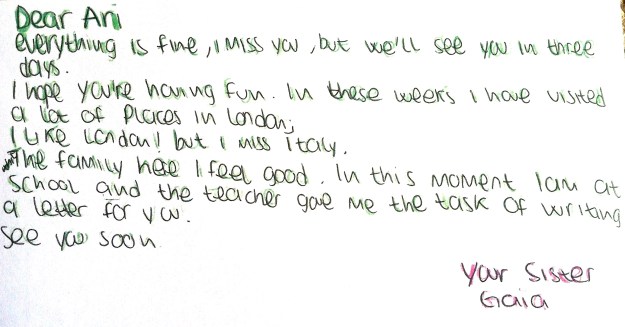 Dear Ari
everything is fine, I miss you, but we'll see you in three
days.
I hope you're having fun. In these weeks I have visited
a lot of places in London;
I like London! but I miss Italy.
The family here I feel good. In this moment I am at
school and the teacher gave me the task of writing
a letter for you.
See you soon
Your Sister
Gaia